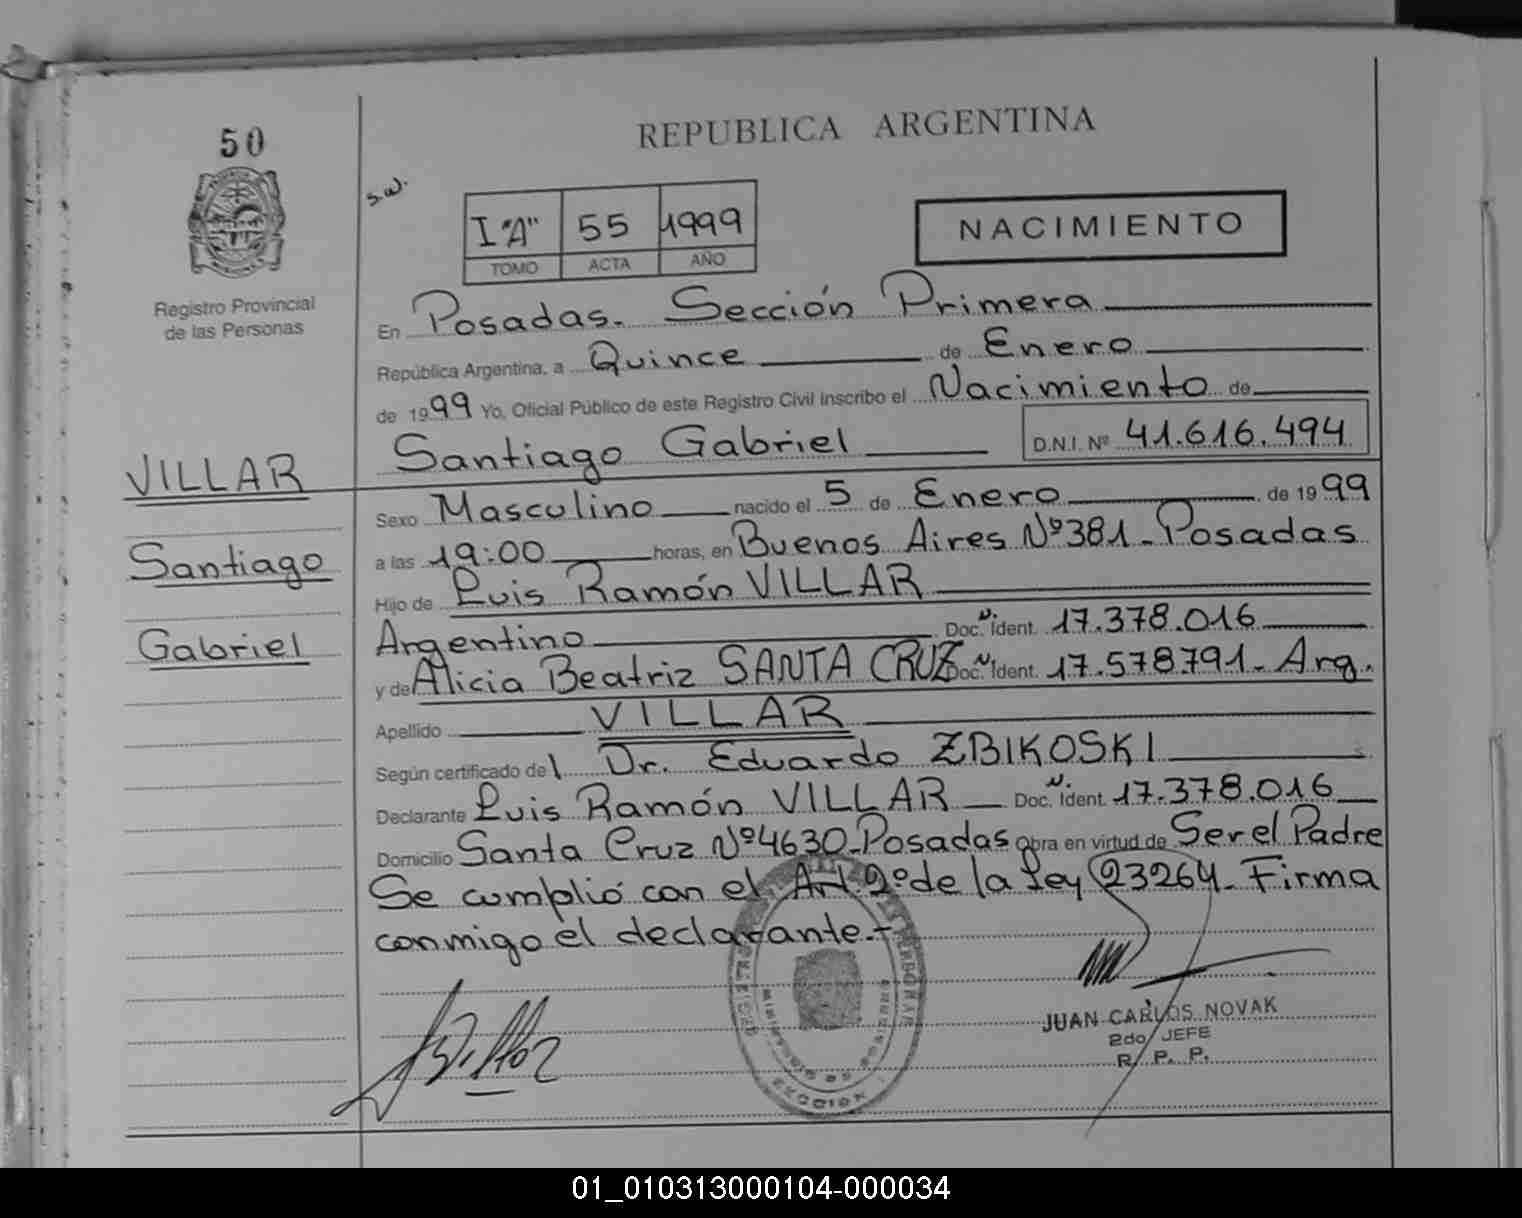 50
REPUBLICA ARGENTINA
s.w.
I "A" 55 1999
TOMO ACTA AÑO
NACIMIENTO
Registro Provincial
de las Personas
En Posadas. Sección Primera
República Argentina, a Quince de Enero
de 1999 Yo, Oficial Público de este Registro Civil inscribo el Nacimiento de
Santiago Gabriel D.N.I. Nº 41.616.494
VILLAR
Sexo Masculino nacido el 5 de Enero de 1999
Santiago
a las 19:00 horas, en Buenos Aires Nº 381 - Posadas
Hijo de Luis Ramón VILLAR
Gabriel
Argentino Doc. N. Ident. 17.378.016
y de Alicia Beatriz SANTA CRUZ Doc. N. Ident. 17.578791 - Arg.
Apellido VILLAR
Según certificado del Dr. Eduardo ZBIKOSKI
Declarante Luis Ramón VILLAR Doc. N. Ident. 17.378.016
Domicilio Santa Cruz Nº 4630 - Posadas Obra en virtud de Ser el Padre
Se cumplió con el Art. 2º de la Ley 23264 - Firma
conmigo el declarante.-
JUAN CARLOS NOVAK
2do JEFE
R. P. P.
01_010313000104-000034